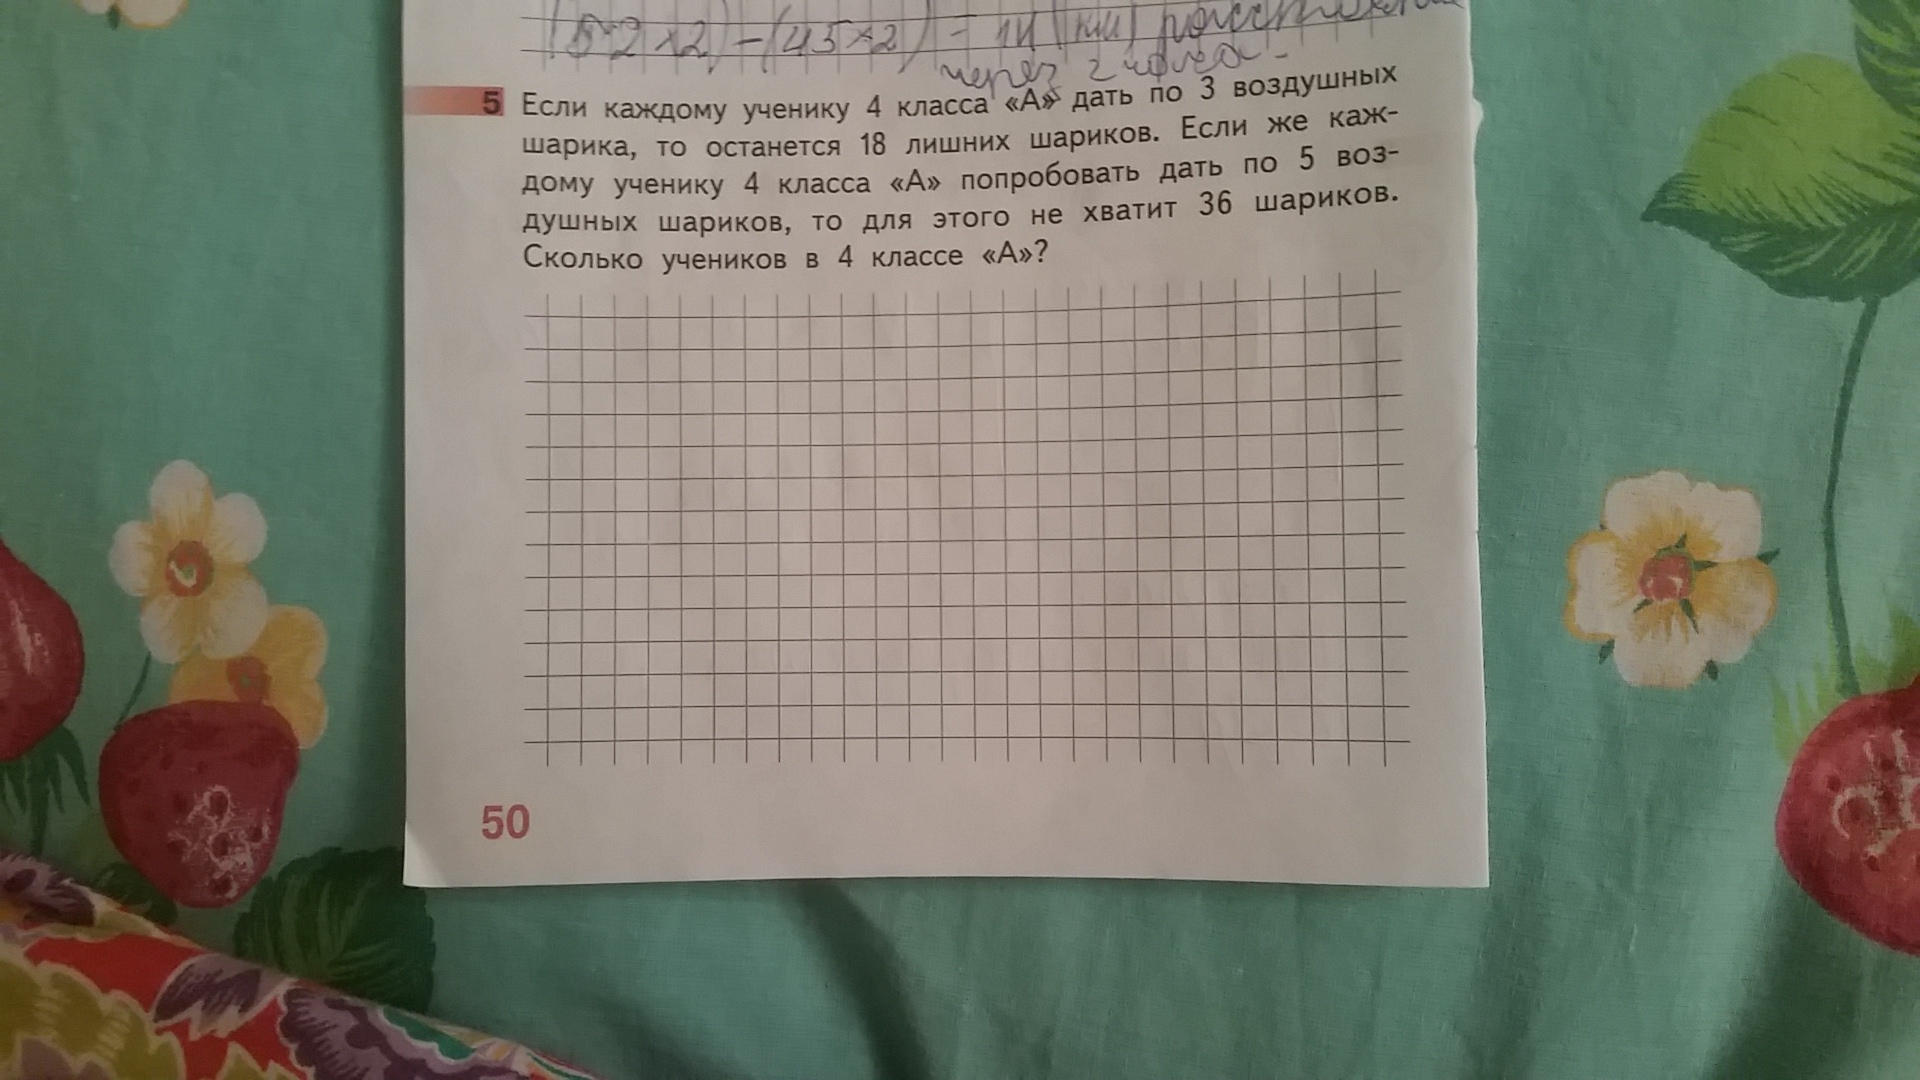 (52×2)-(45×2) = 14 (км)
через 2 часа.
5 Если каждому ученику 4 класса «А» дать по 3 воздушных
шарика, то останется 18 лишних шариков. Если же каж-
дому ученику 4 класса «А» попробовать дать по 5 воз-
душных шариков, то для этого не хватит 36 шариков.
Сколько учеников в 4 классе «А»?
50